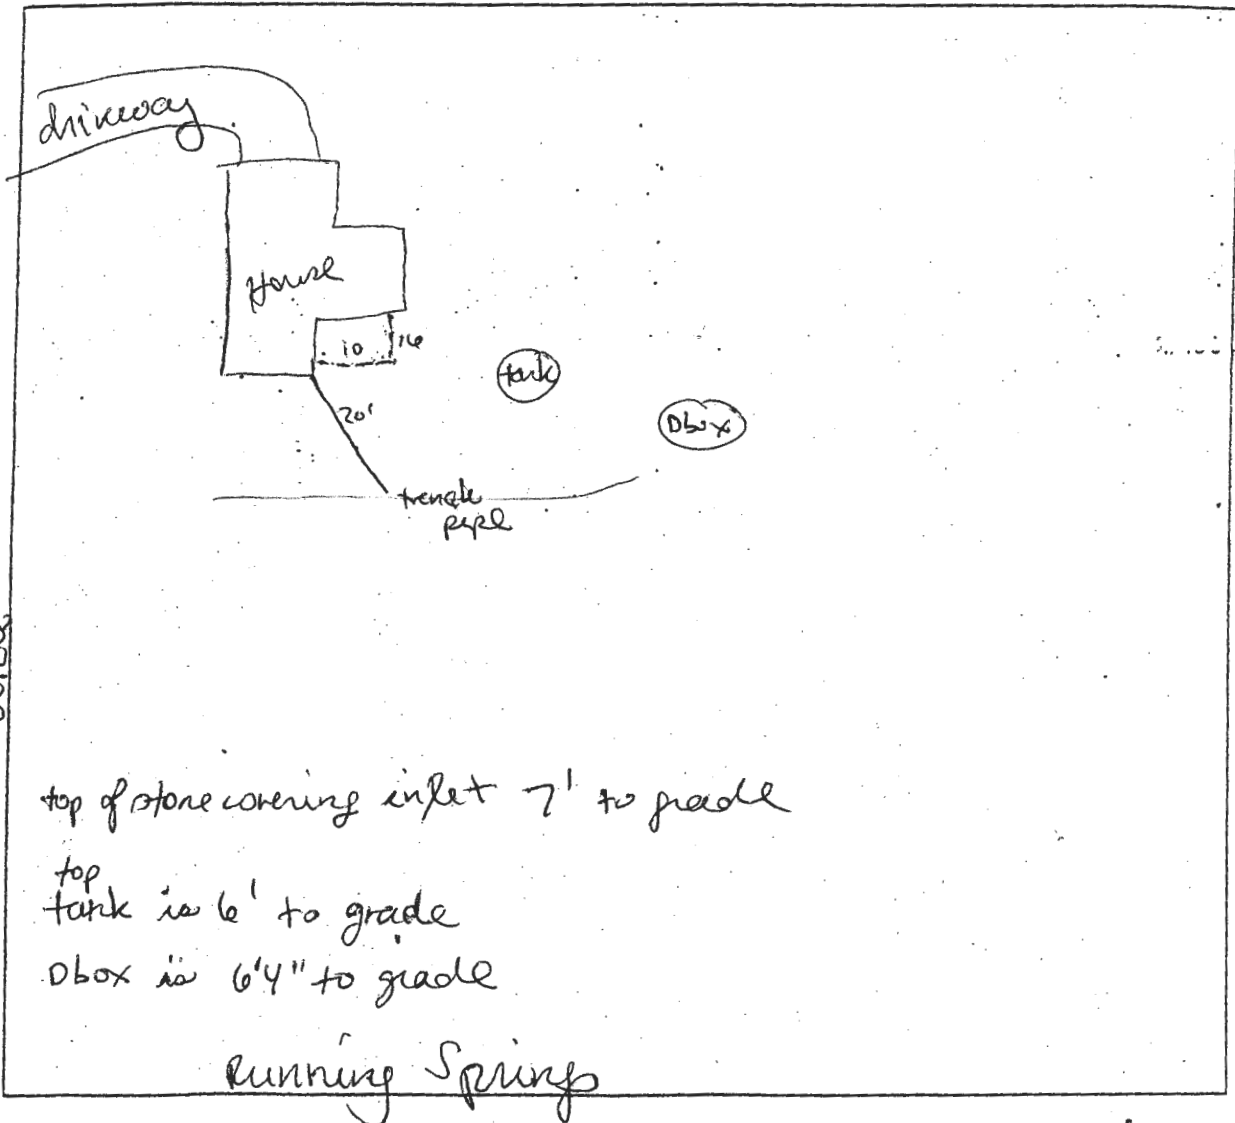 driveway
House
10
16
20'
tank
Dbox
trench
pipe
top of stone covering inlet 7' to grade
top
tank is 6' to grade
Dbox is 6'4" to grade
Running Springs